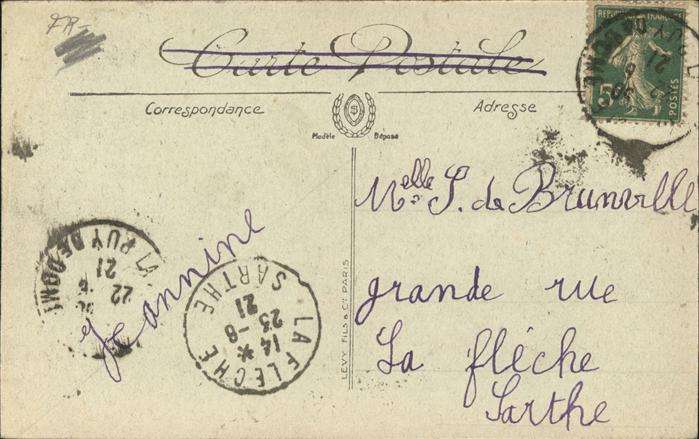 FR-
Carte Postale
Correspondance
Adresse
Modèle Déposé
RÉPUBLIQUE FRANÇAISE
5c
POSTES
Melle S. de Brunville
grande rue
La flèche
Sarthe
Jeannine
PUY DE DOME
22
21
LA FLECHE
14 *
23-8
21
SARTHE
LEVY FILS & Cie PARIS